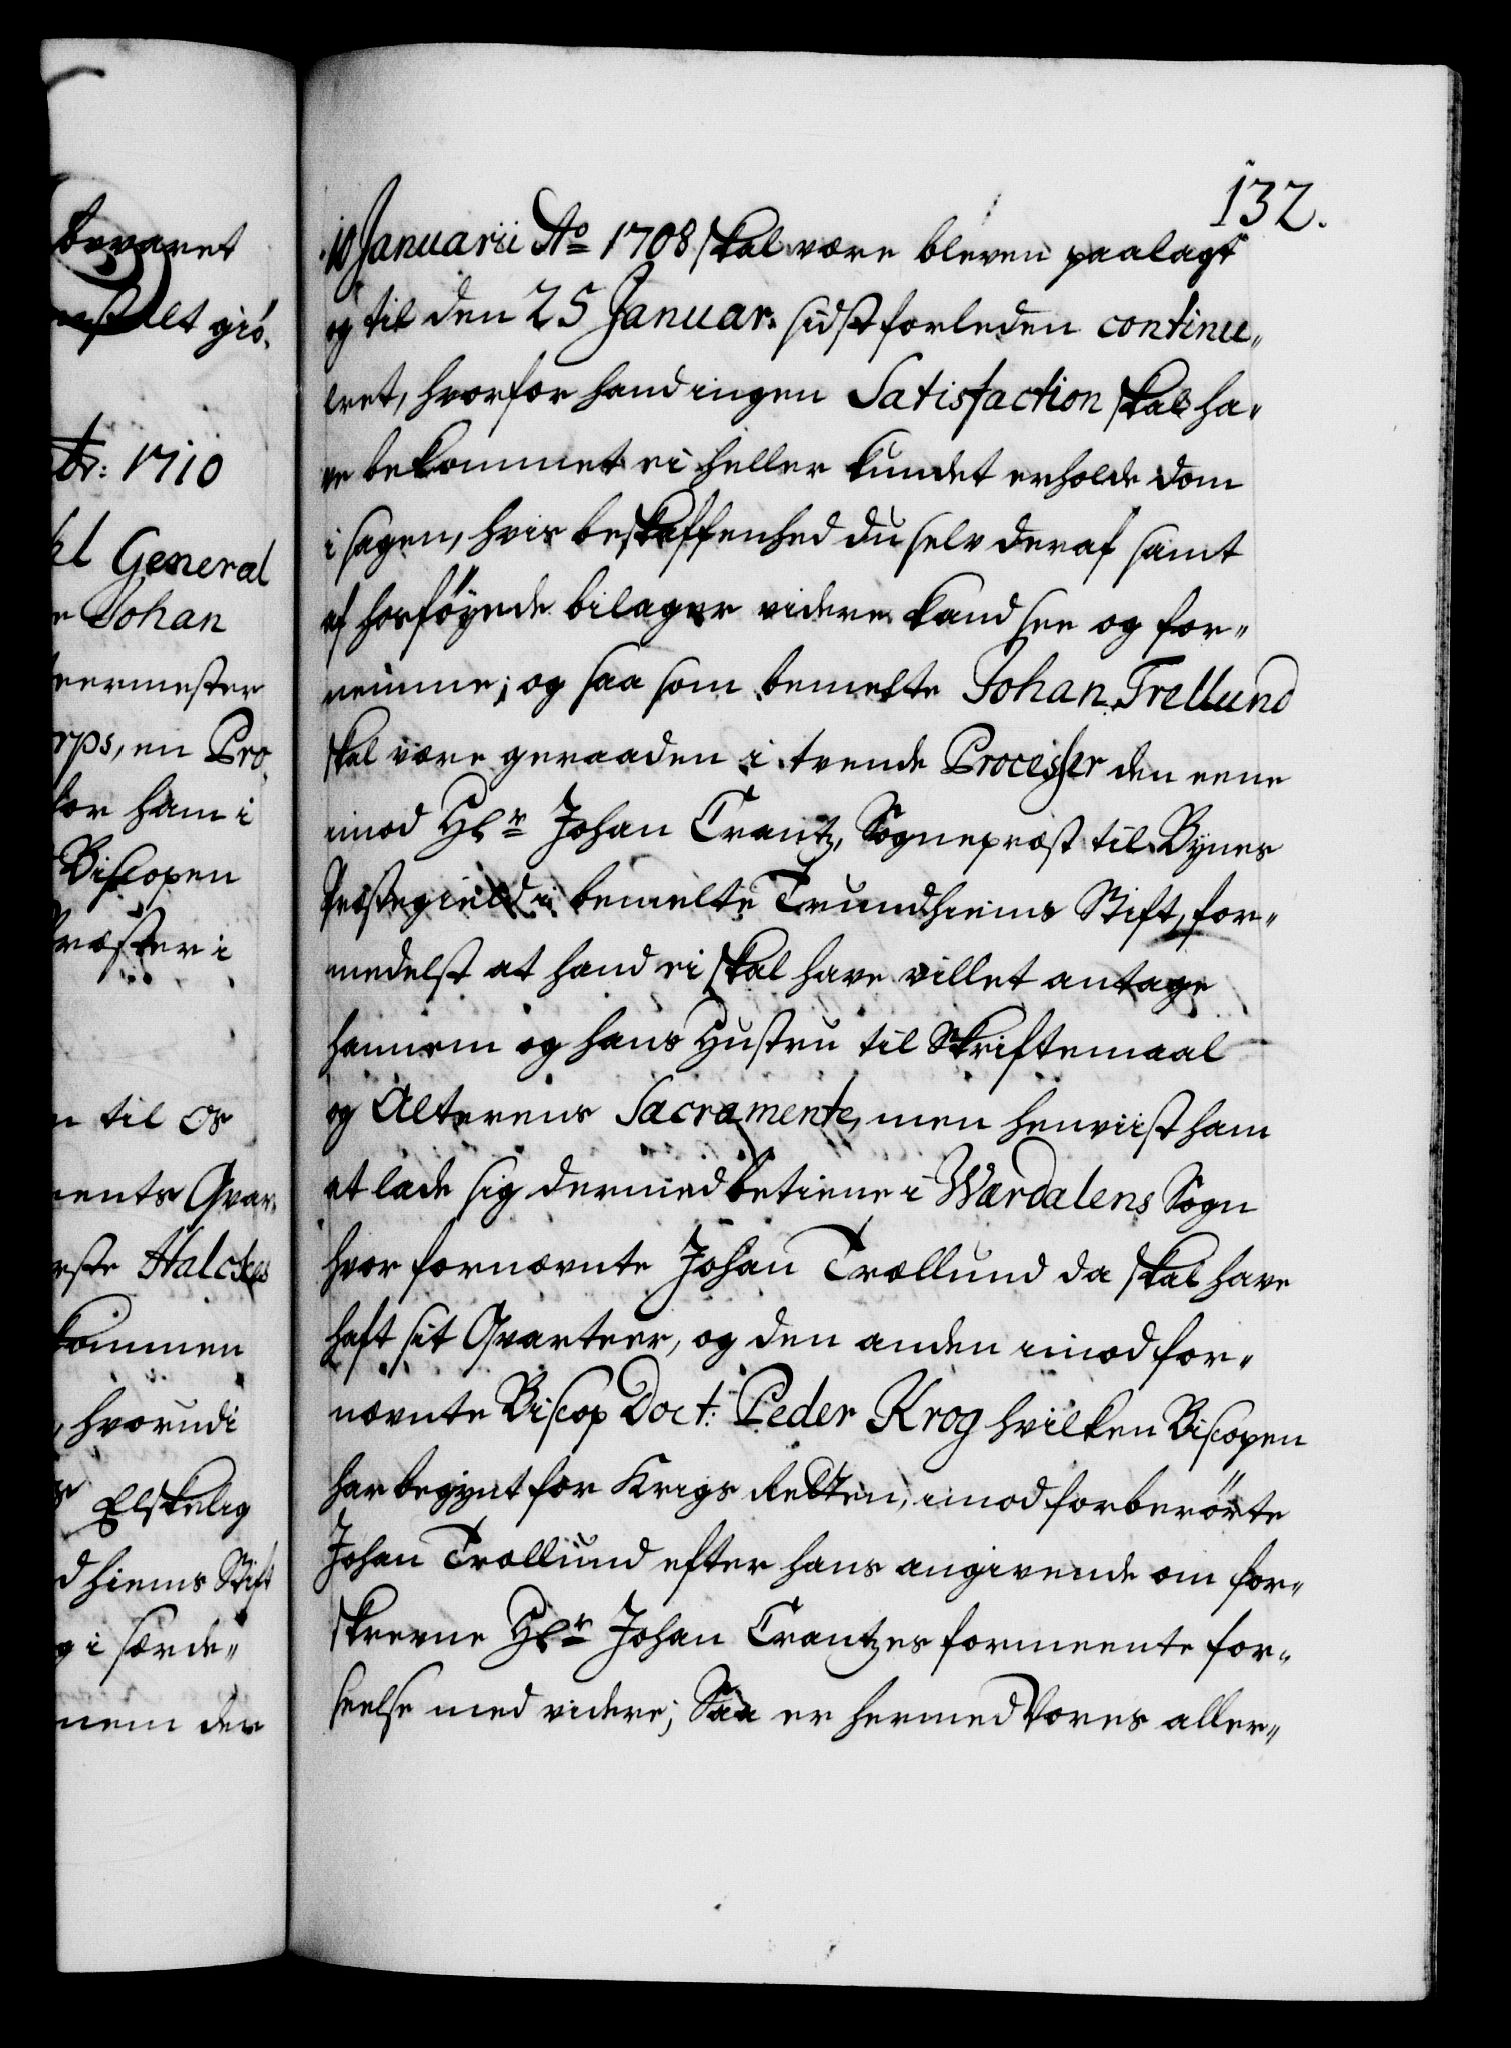 bevaret
nstalt giö,
br: 1710
kl General
e Johan
teermester
rps, en Pro,
for ham i
Biscopen
Præster i
n til os
ments Qvar,
rste Halckes
kommen
, hvorudi
Elskelig
dhiems Stift
g i særde„
nem der
132.
10 Januarii Aº 1708 skal være bleven paalagt
og til den 25 Januar: sidst forleden continu„
eret, hvorfor hand ingen Satisfaction skal ha„
ve bekommet ei heller kundet erholde dom
i sagen, hvis beskaffenhed du selv deraf samt
af hosföyede bilager videre kand see og for„
nemme; og saa som bemelte Johan Trellund
skal være geraaden i tvende Processer den eene
imod Hr Johan Crantz, Sognepræst til Bynes
Præstegield i bemelte Trundhiems Stift, for„
medelst at hand ei skal have villet antage
hannem og hans Hustru til Skriftemaal
og Alterens Sacramente, men henviist ham
at lade sig dermed betiene i Wærdalens Sogn
hvor fornævnte Johan Trællund da skal have
haft sit Qvarteer, og den anden imod for„
nævnte Biscop Doct: Peder Krog hvilken Biscopen
har begynt for Krigs Retten, imod forberörte
Johan Trællund efter hans angivende om for„
skrevne Hr Johan Crantzes formeente for„
seelse med videre; Saa er hermed Vores aller„